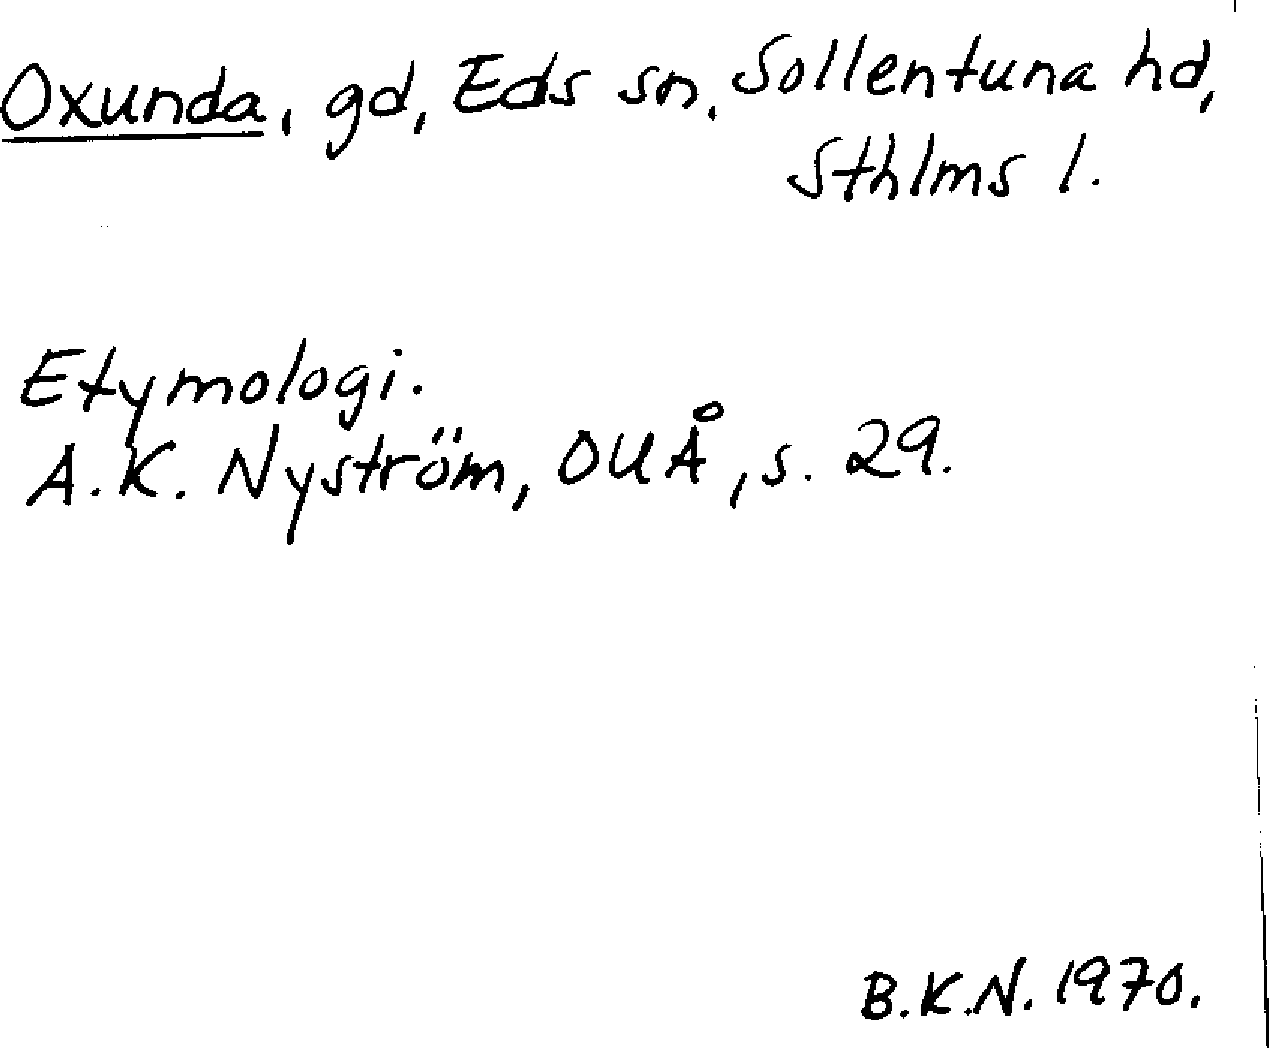 Oxunda, gd, Eds sn, Sollentuna hd,
Sthlms l.
Etymologi.
A.K. Nyström, OUÅ, s. 29.
B.K.N. 1970.